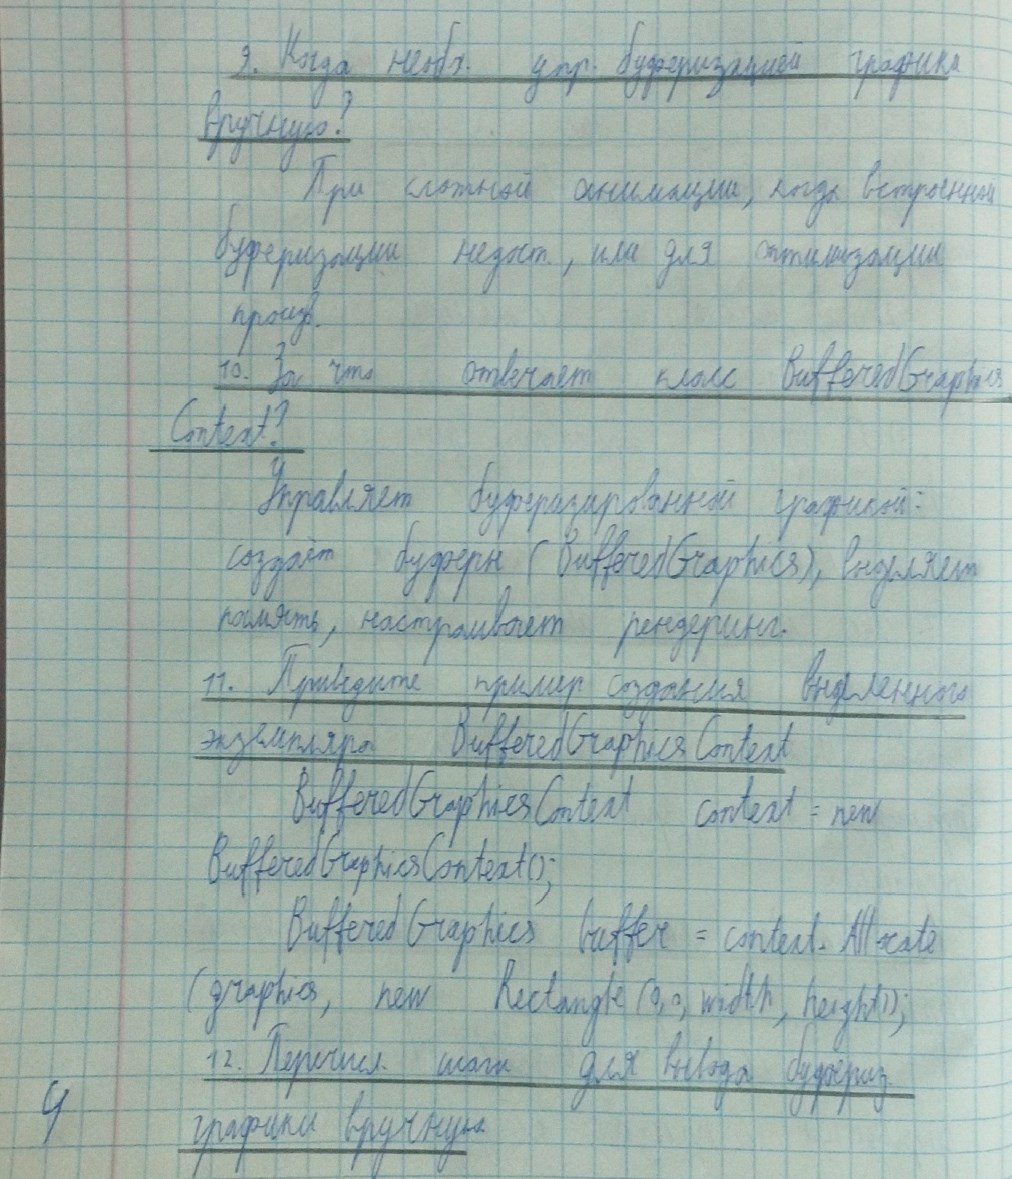 9. Когда необх. упр. буферизацией графики
вручную?
При сложной анимации, когда встроенной
буферизации недост., или для оптимизации
произв.
10. За что отвечает класс BufferedGraphics
Context?
Управляет буферизированной графикой:
создаёт буферы (BufferedGraphics), выделяет
память, настраивает рендеринг.
11. Приведите пример создания выделенного
экземпляра BufferedGraphicsContext
BufferedGraphicsContext context = new
BufferedGraphicsContext();
BufferedGraphics buffer = context.Allocate
(graphics, new Rectangle(0,0, width, height));
12. Перечисл. шаги для вывода буфериз.
графики вручную
4